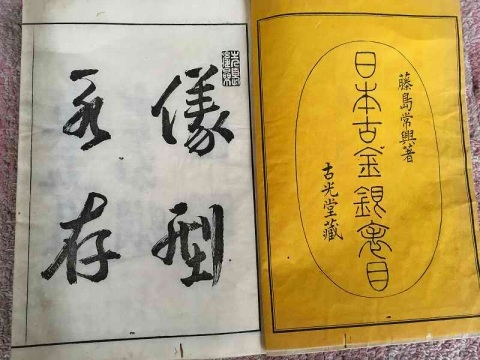 藤島常興著
日本古金銀
目
古光堂藏
儀型
永存